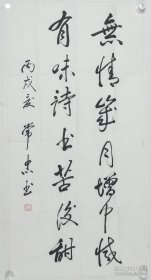 無情歲月增中減
有味詩書苦後甜
丙戌夏 常忠書